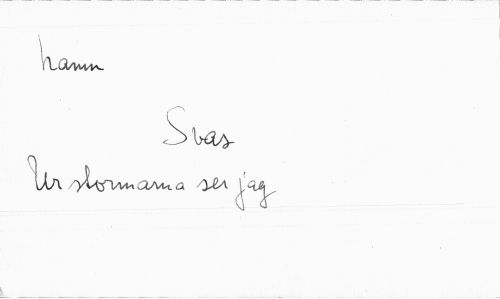 hamn
Svas
Ur stormarna ser jag